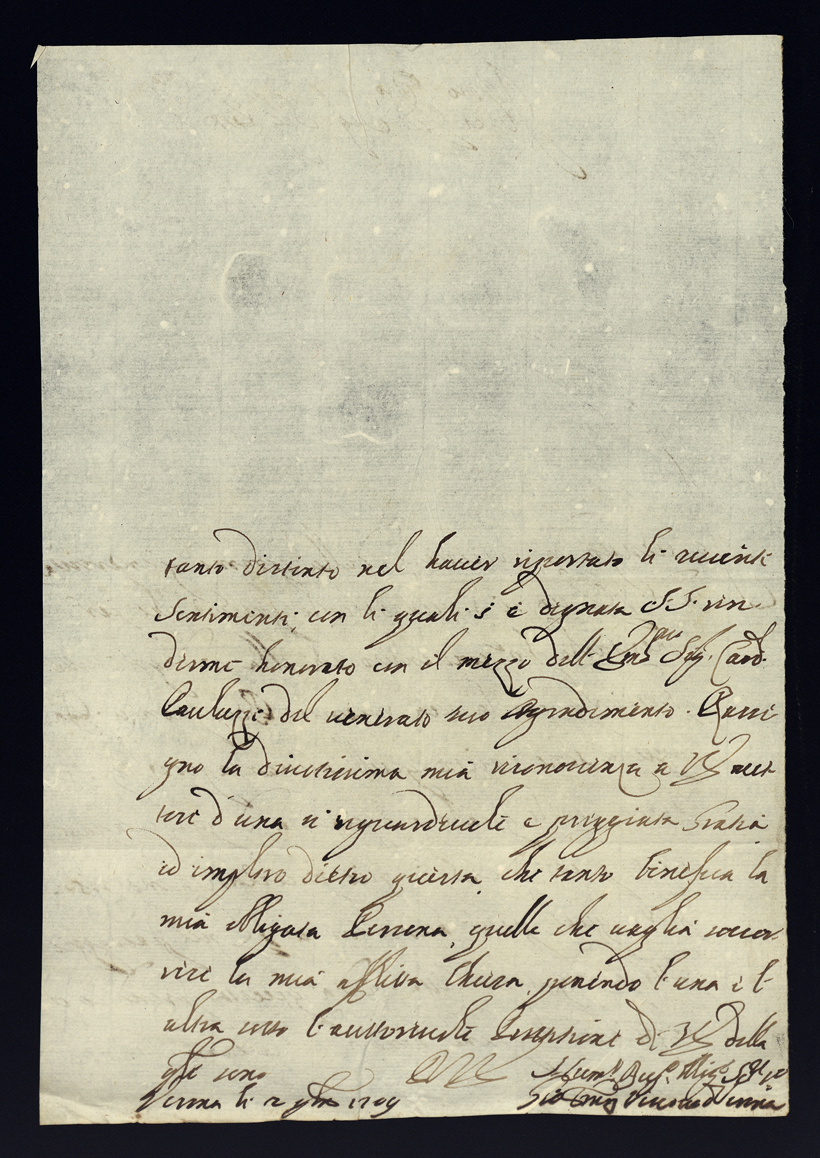 tanto distinto nel hauer riportato li recenti
Sentimenti, con li quali s'è degnata S.S. ren
derme honorato con il mezzo dell' Em.mo Sig. Card.
Paulucci del venerato suo aggradimento. Rasse
gno la diuotissima mia riconoscenza a VS
d'una si riguardeuole e preggiata Gratia
ed imploro dietro questa, che tanto benefica la
mia obligata Persona, quella che uoglia soccor
rere la mia afflitta Chiesa, ponendo l'una e l'
altra sotto l'auttoreuole protettione di VS della
qle sono
li 2 9bre 1709